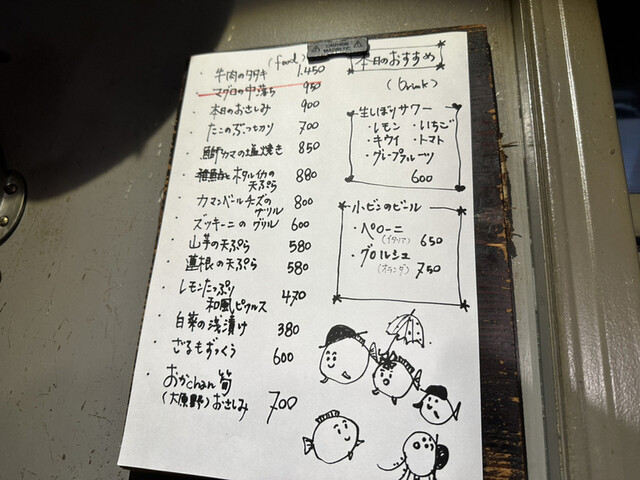 (food)
・牛肉のタタキ 1,450
・マグロの中落ち 950
・本日のおさしみ 900
・たこのぶつ切り 700
カマの塩焼き 850
ホタルイカの
天ぷら 880
・カマンベールチーズの
グリル 800
・ズッキーニのグリル 600
・山芋の天ぷら 580
・蓮根の天ぷら 580
・レモンたっぷり
和風ピクルス 470
・白菜の浅漬け 380
・ざるもずっくう 600
・おかchan 筍
(大原野)おさしみ 700
本日のおすすめ
(Drink)
生しぼりサワー
・レモン ・いちご
・キウイ ・トマト
・グレープフルーツ
600
小ビンのビール
・ペローニ
(イタリア) 650
・グロルシュ
(オランダ) 750